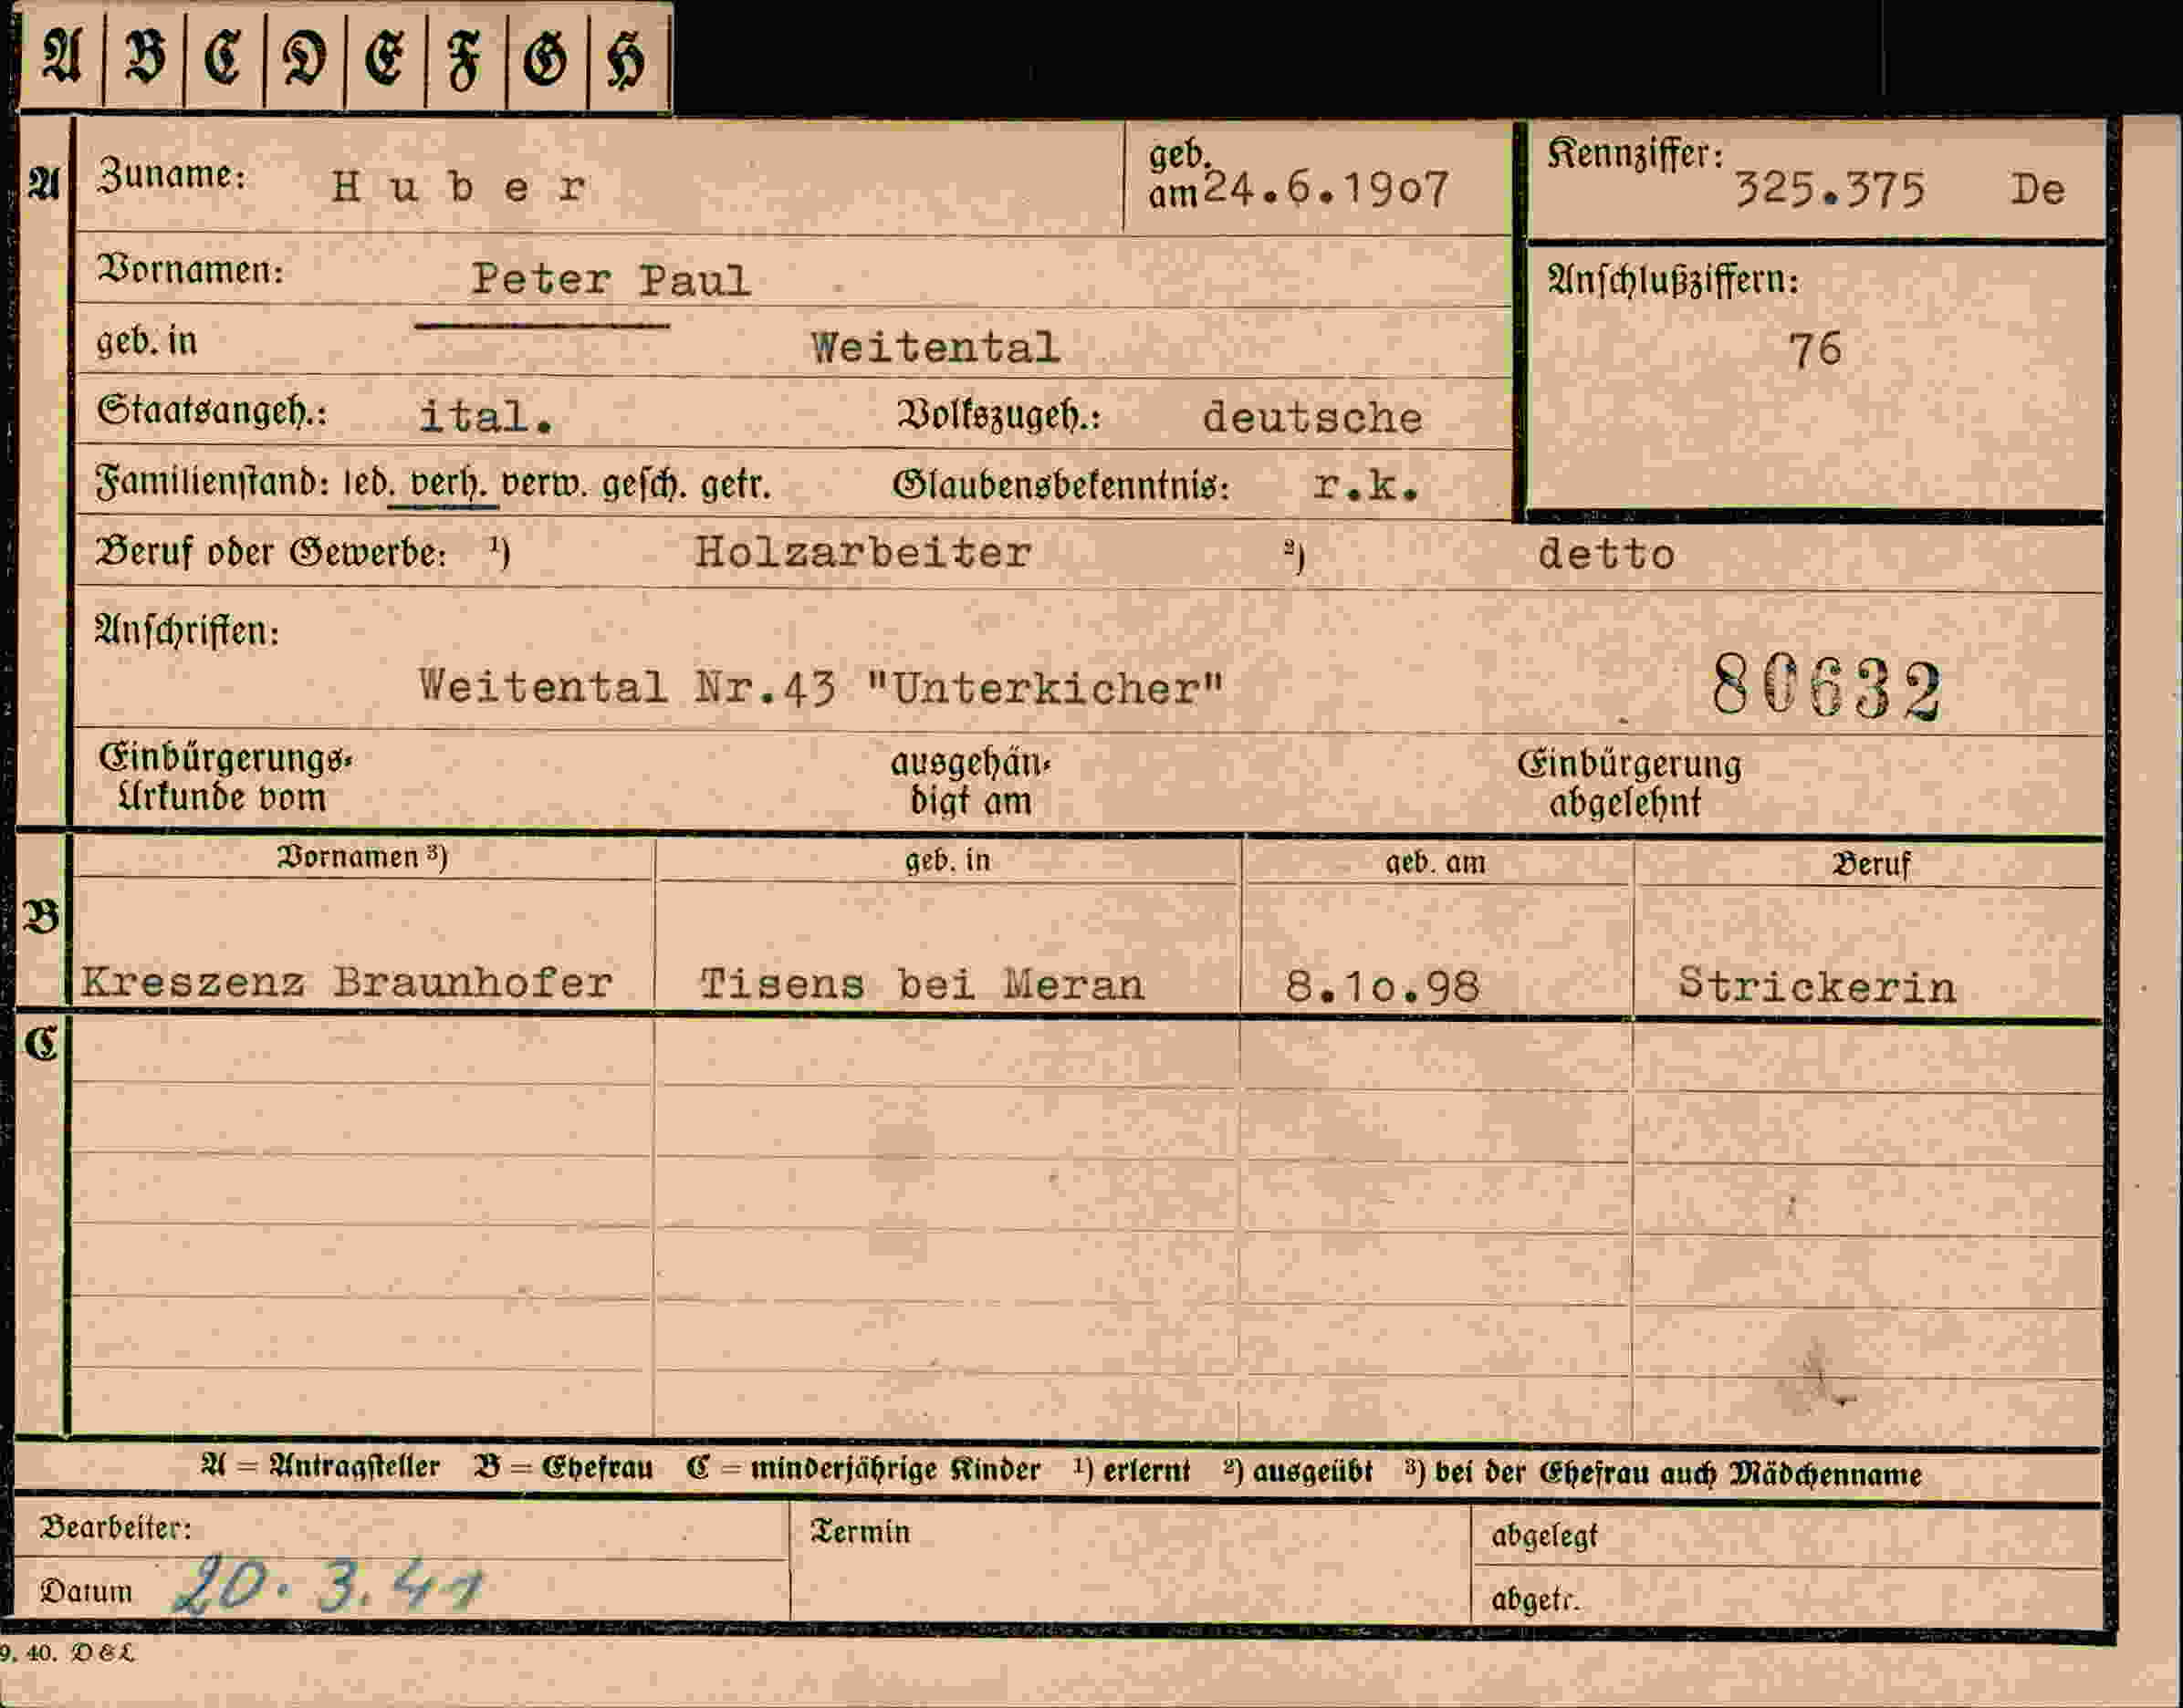 A B C D E F G H
A Zuname: Huber geb. am 24.6.1907 Kennziffer: 325.375 De
Vornamen: Peter Paul Anschlußziffern:
geb. in Weitental 76
Staatsangeh.: ital. Volkszugeh.: deutsche
Familienstand: led. verh. verw. gesch. getr. Glaubensbekenntnis: r.k.
Beruf oder Gewerbe: ¹) Holzarbeiter ²) detto
Anschriften:
Weitental Nr.43 "Unterkicher" 80632
Einbürgerungs- ausgehän- Einbürgerung
Urkunde vom digt am abgelehnt
Vornamen ³) geb. in geb. am Beruf
B
Kreszenz Braunhofer Tisens bei Meran 8.10.98 Strickerin
C
A = Antragsteller B = Ehefrau C = minderjährige Kinder ¹) erlernt ²) ausgeübt ³) bei der Ehefrau auch Mädchenname
Bearbeiter: Termin abgelegt
Datum 20.3.41 abgetr.
9. 40. D&L